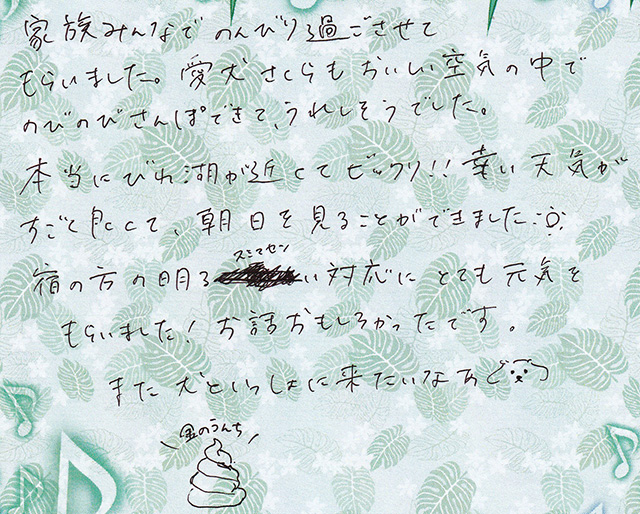 家族みんなでのんびり過ごさせて
もらいました。愛犬さくらもおいしい空気の中で
のびのびさんぽできて、うれしそうでした。
本当にびわ湖が近くてビックリ!! 幸い天気が
すごく良くて、朝日を見ることができました
スミマセン
宿の方の明るい対応にとても元気を
もらいました! お話おもしろかったです。
また犬といっしょに来たいなぁ
金のうんち